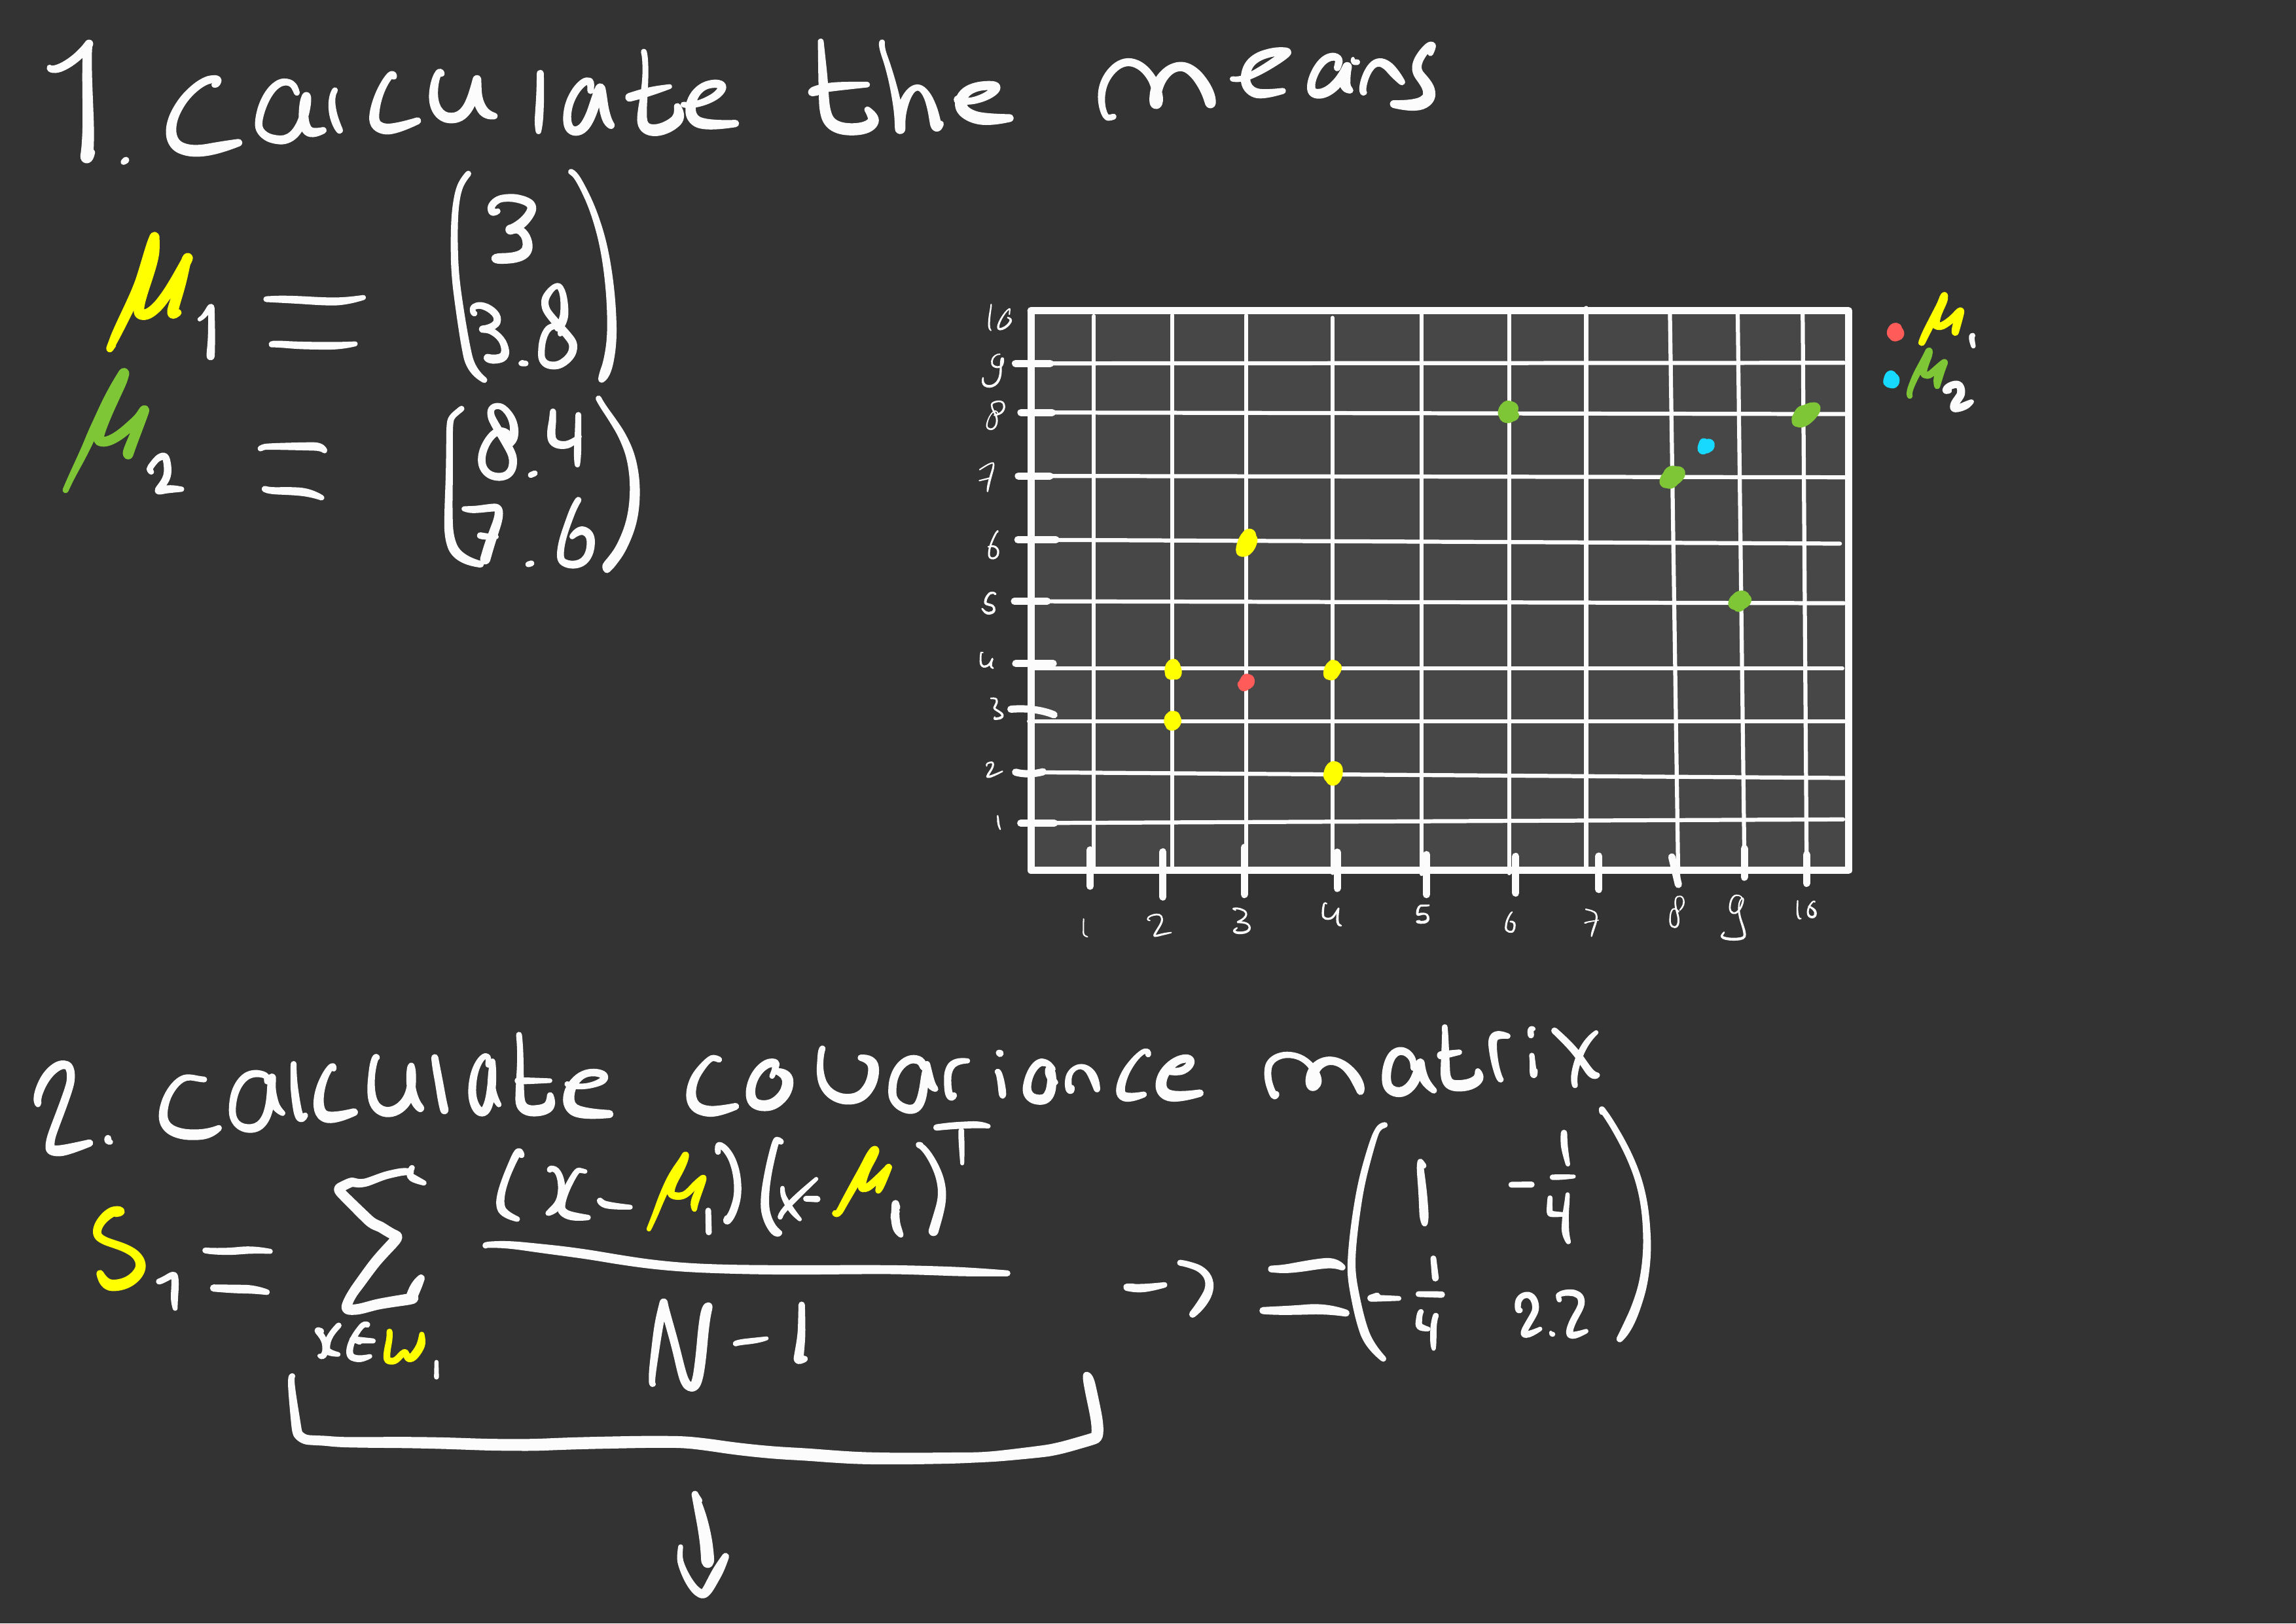 1. Calculate the means
μ₁ = (3
3.8)
μ₂ = (8.4
7.6)
10
9
8
7
6
5
4
3
2
1
1 2 3 4 5 6 7 8 9 10
μ₁
μ₂
2. Calculate covariance matrix
S₁ = Σ x∈ω₁ (x-μ₁)(x-μ₁)ᵀ / N-1 → = (1 -1/4
-1/4 2.2)